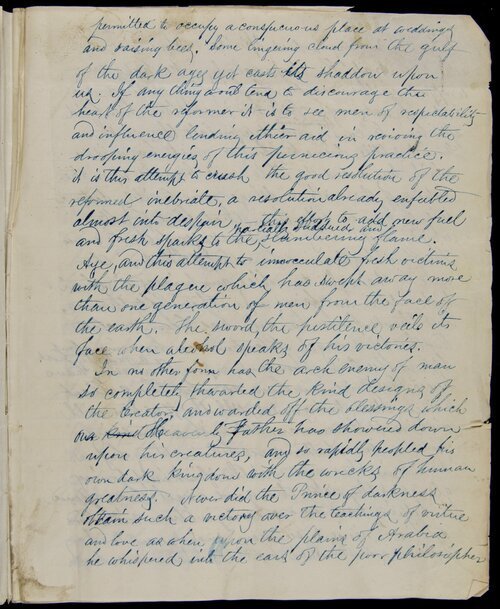 permitted to occupy a conspicuous place at weddings
and raising bees, some lingering cloud from the gulf
of the dark ages yet casts its shaddow upon
us. If any thing would tend to discourage the
heart of the reformer it is to see men of respectability
and influence lending their aid in reviving the
drooping energies of this pernicious practice.
it is this attempt to crush the good resolution of the
reformed inebriate, a resolution already enfeebled
almost into despair this effort to add new fuel
and fresh sparks to the partially subdued and slumbering flame.
Aye, and this attempt to innocculate fresh victims
with the plague which has swept away more
than one generation of men from the face of
the earth. The sword, the pestilence veils its
face when alcohol speaks of his victories.
In no other form has the arch enemy of man
so completely thwarted the kind designs of
the Creator, and warded off the blessings which
our kind Heavenly Father has showered down
upon his creatures, and so rapidly peopled his
own dark kingdom with the wrecks of human
greatness. Never did the Prince of darkness
obtain such a victory over the teachings of virtue
and love as when upon the plains of Arabia
he whispered into the ears of the poor philosopher